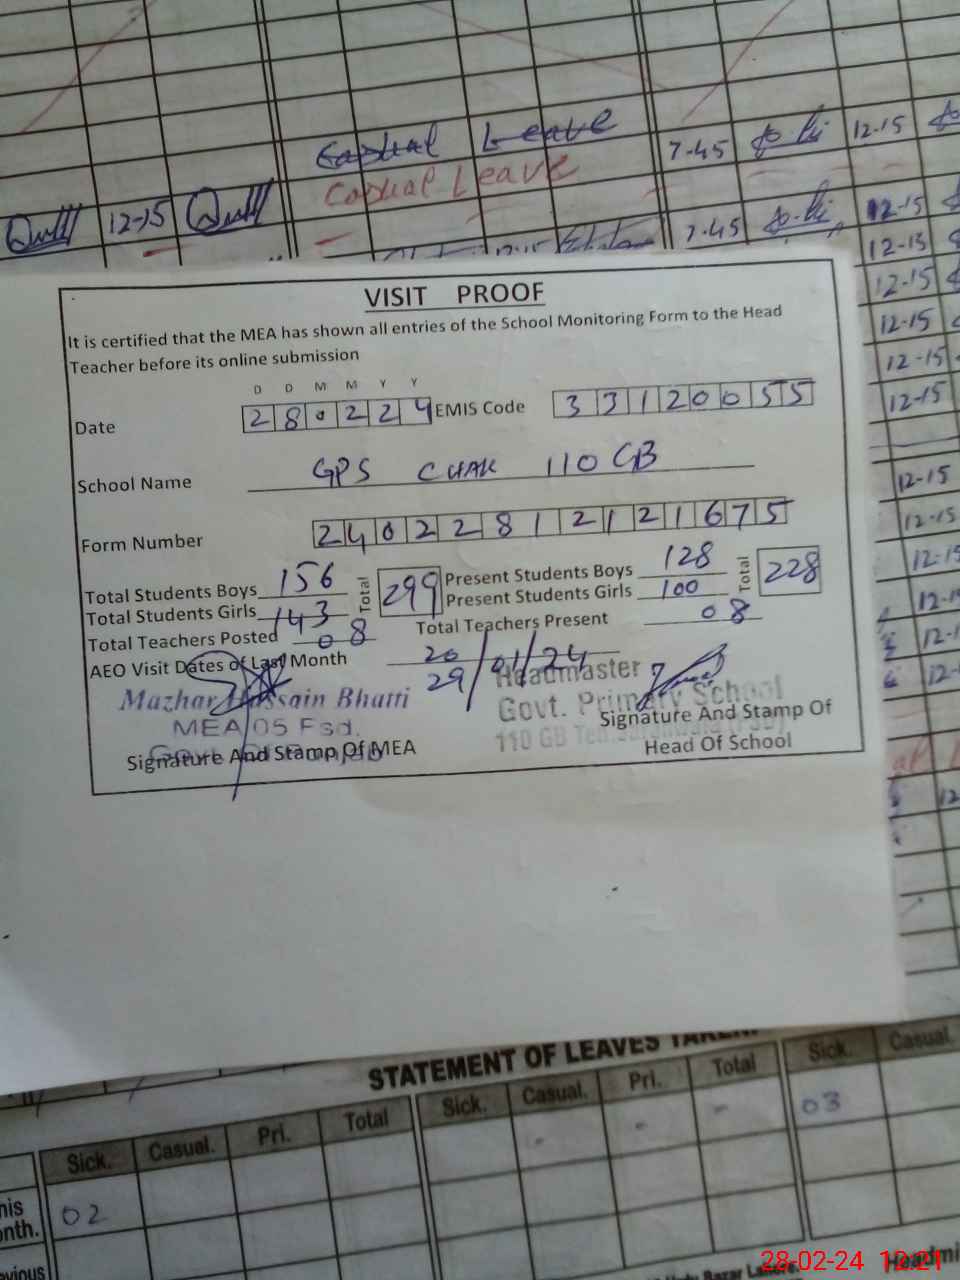 Casual Leave
Casual Leave
7-45 12-15
12-15
7-45 12-15
12-15
12-15
12-15
12-15
12-15
12-15
12-15
VISIT PROOF
It is certified that the MEA has shown all entries of the School Monitoring Form to the Head
Teacher before its online submission
D D M M Y Y
Date 280224 EMIS Code 33120055
School Name GPS CHAK 110 GB
Form Number 24022812121675
Total Students Boys 156 Total 299 Present Students Boys 128 Total 228
Total Students Girls 143 Present Students Girls 100
Total Teachers Posted 08 Total Teachers Present 08
AEO Visit Dates of Last Month 20 29/01/24
Mazhar Hussain Bhatti
MEA 05 Fsd.
Signature And Stamp Of MEA
Headmaster
Govt. Primary School
110 GB
Signature And Stamp Of
Head Of School
STATEMENT OF LEAVES TAKEN
Sick. Casual. Pri. Total Sick. Casual. Pri. Total Sick. Casual.
03
02
28-02-24 12:21